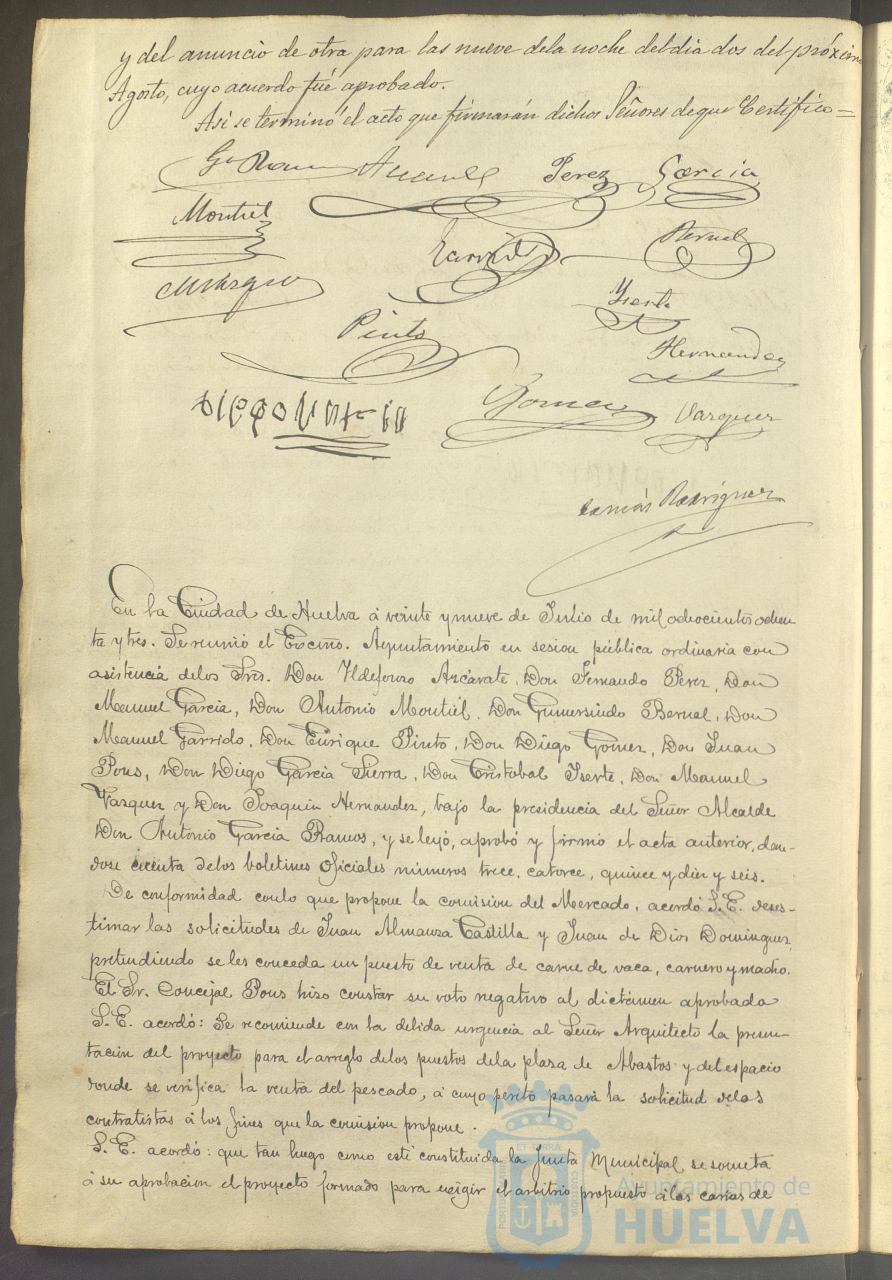 y del anuncio de otra para las nueve dela noche del dia dos del próximo
Agosto, cuyo acuerdo fué aprobado.
Asi se terminó el acto que firmarán dichos Señores de que Certifico=
Ga Ramos Azcarate Perez Garcia
Montiel
Garrido Bernal
M Vazquez
Yserte
Pinto
Hernandez
Gomez Vazquez
Tomás Rodriguez
En la Ciudad de Huelva á veinte y nueve de Julio de mil ochocientos ochen
ta y tres. Se reunió el Excmo. Ayuntamiento en sesion pública ordinaria con
asistencia delos Sres. Don Ildefonso Azcárate, Don Fernando Perez, Don
Manuel Garcia, Don Antonio Montiel, Don Gumersindo Bernal, Don
Manuel Garrido, Don Enrique Pinto, Don Diego Gomez, Don Juan
Pons, Don Diego Garcia Sierra, Don Cristobal Iserte, Don Manuel
Vazquez y Don Joaquin Hernandez, bajo la presidencia del Señor Alcalde
Don Antonio Garcia Ramos, y se leyó, aprobó y firmó el acta anterior, dan-
dose cuenta delos boletines oficiales números trece, catorce, quince y diez y seis.
De conformidad conlo que propone la comision del Mercado, acordó S.E. deses-
timar las solicitudes de Juan Almanza Castilla y Juan de Dios Dominguez,
pretendiendo se les conceda un puesto de venta de carne de vaca, carnero y macho.
El Sr. Concejal Pons hizo constar su voto negativo al dictámen aprobado
S.E. acordó: Se recomiende con la debida urgencia al Señor Arquitecto la presen-
tacion del proyecto para el arreglo delos puestos dela plaza de Abastos y del espacio
donde se verifica la venta del pescado, á cuyo perito pasará la solicitud delos
contratistas á los fines que la comision propone.
S.E. acordó: que tan luego como esté constituida la Junta Municipal se someta
á su aprobacion el proyecto formado para exigir el arbitrio propuesto á las carnes de
Ayuntamiento de
HUELVA